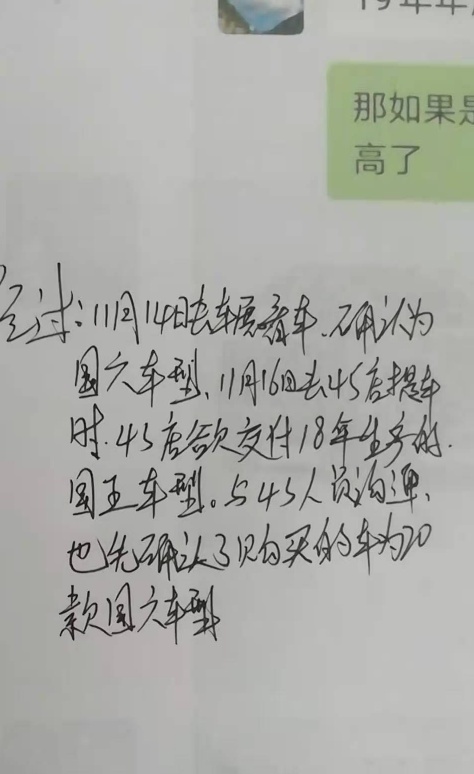 19年年
那如果是
高了
经过:11月14日去车展看车.确认为
国六车型.11月16日去4S店提车
时.4S店欲交付18年生产的.
国五车型。与4S人员沟通、
也先确认了购买的车为20
款国六车型